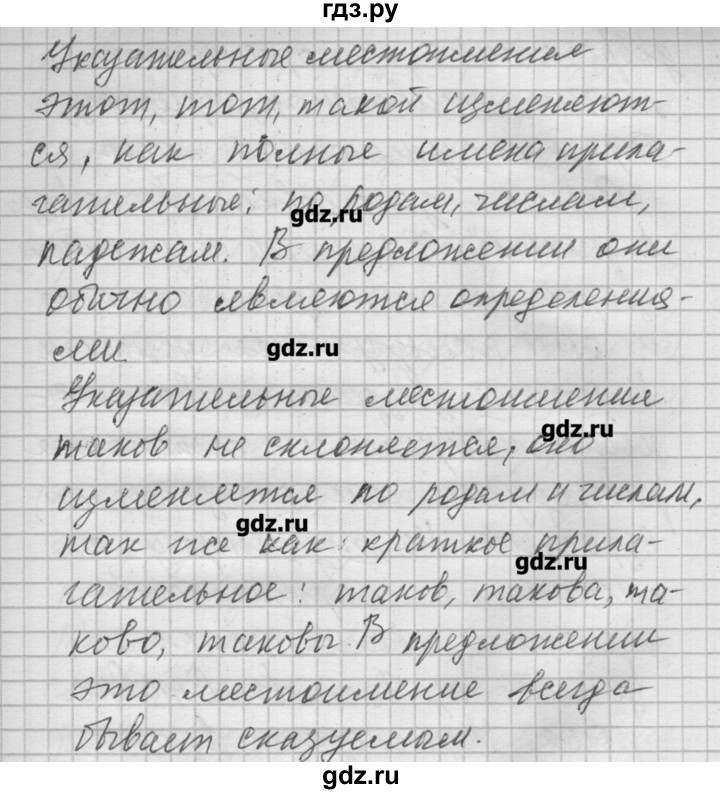 гдз.ру
Указательные местоимения
этот, тот, такой изменяют-
ся, как полные имена прила-
гательные: по родам, числам,
gdz.ru
падежам. В предложении они
обычно являются определения-
ми
gdz.ru
Указательные местоимения
таков не склоняется, оно
gdz.ru
изменяется по родам и числам,
gdz.ru
так же как краткое прила-
gdz.ru
гательное: таков, такова, та-
ково, таковы. В предложении
это местоимение всегда
бывает сказуемым.
gdz.ru